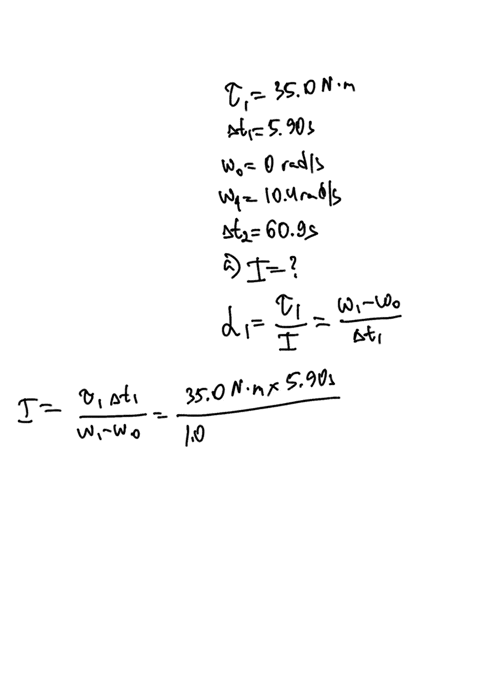 τ₁ = 35.0 N·m
Δt₁ = 5.90 s
ω₀ = 0 rad/s
ω₁ = 10.4 rad/s
Δt₂ = 60.9 s
a) I = ?
α₁ = τ₁ / I = (ω₁ - ω₀) / Δt₁
I = τ₁ Δt₁ / (ω₁ - ω₀) = 35.0 N·m × 5.90 s / 1.0